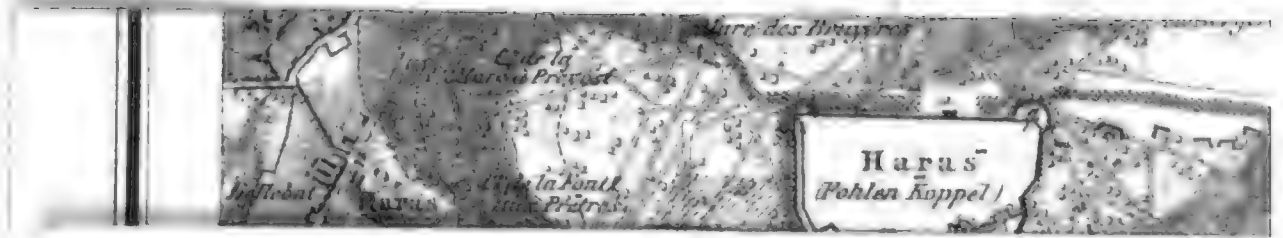 Mare des Bruyères
C. de la
Mare à Prévost
Haras
(Fohlen Koppel)
C. de la Font.
aux Prêtres
Haras